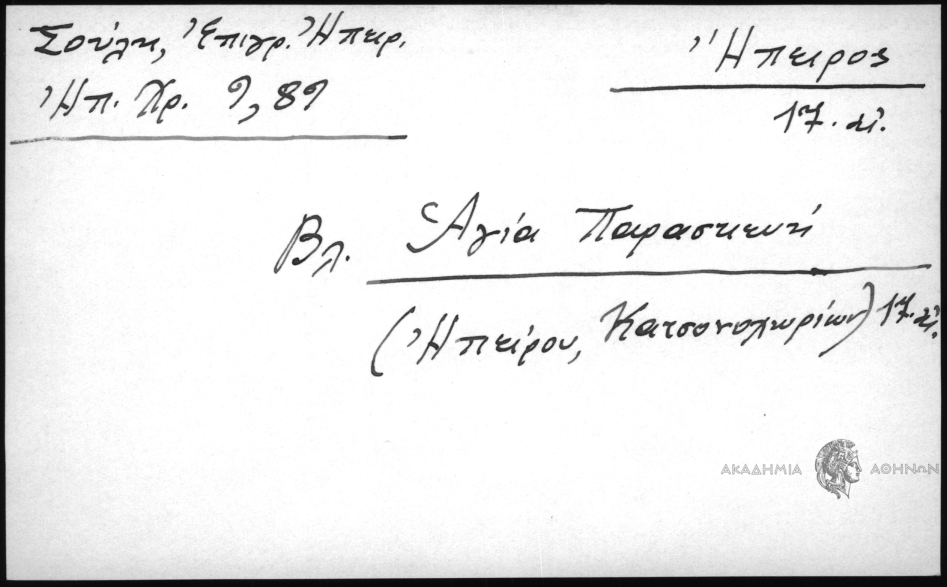 Σούλη, Ἐπιγρ. Ἠπειρ.
Ἠπ. Χρ. 9, 89
Ἤπειρος
17. αἰ.
Βλ. Ἁγία Παρασκευή
(Ἠπείρου, Κατσανοχωρίων) 17. αἰ.
ΑΚΑΔΗΜΙΑ ΑΘΗΝΩΝ